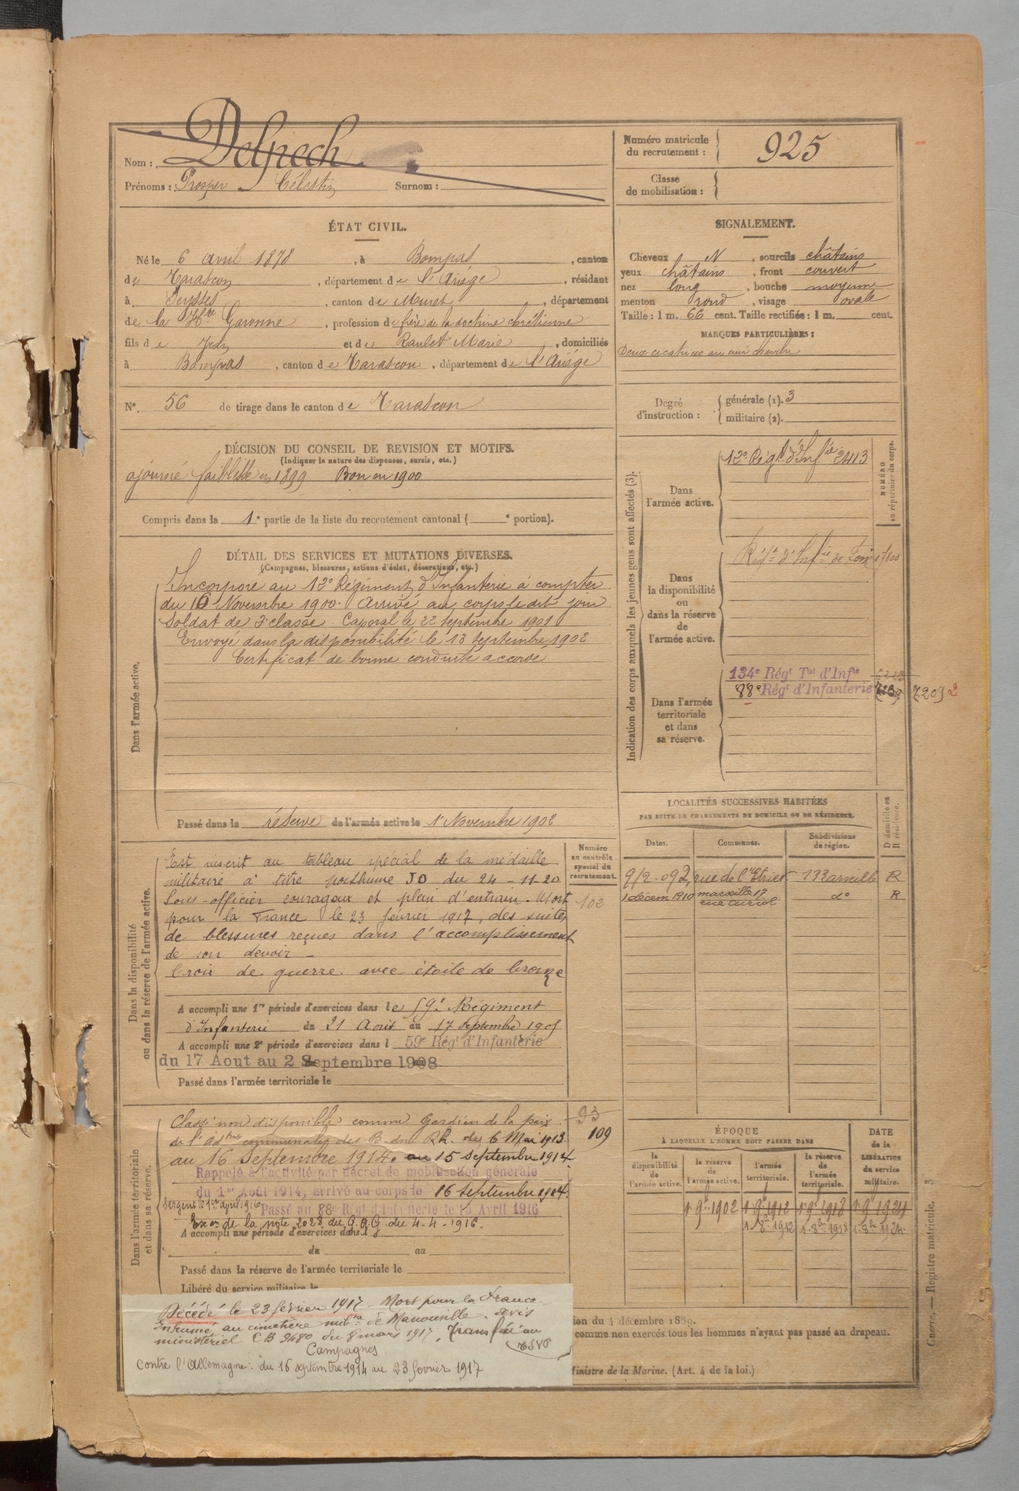 Nom : Delpech
Prénoms : Prosper Célestin Surnom :
Numéro matricule du recrutement : 925
Classe de mobilisation :
ÉTAT CIVIL.
Né le 6 avril 1878, à Bompas, canton
de Tarascon, département de l'Ariège, résidant
à Seysses, canton de Muret, département
de la Hte Garonne, profession de frère de la doctrine chrétienne
fils de Jean et de Raulet Marie, domiciliés
à Bompas, canton de Tarascon, département de l'Ariège
N°. 56 de tirage dans le canton de Tarascon
SIGNALEMENT.
Cheveux N, sourcils châtains
yeux châtains, front couvert
nez long, bouche moyenne
menton rond, visage ovale
Taille : 1 m. 66 cent. Taille rectifiée : 1 m. cent.
MARQUES PARTICULIÈRES :
Deux cicatrices au
Degré d'instruction : générale (1). 3
militaire (2).
DÉCISION DU CONSEIL DE REVISION ET MOTIFS.
(Indiquer la nature des dispenses, sursis, etc.)
ajourné faiblesse en 1899 Bon en 1900
Compris dans la 1e partie de la liste du recrutement cantonal ( e portion).
DÉTAIL DES SERVICES ET MUTATIONS DIVERSES.
(Campagnes, blessures, actions d'éclat, décorations, etc.)
Dans l'armée active.
Incorporé au 12e Régiment d'Infanterie à compter
du 16 Novembre 1900. Arrivé au corps le dit jour
Soldat de 2e classe. Caporal le 22 septembre 1901
Envoyé dans la disponibilité le 13 Septembre 1902
Certificat de bonne conduite accordé
Passé dans la réserve de l'armée active le 1er Novembre 1902
Indication des corps auxquels les jeunes gens sont affectés (3).
NUMÉRO au répertoire du corps.
Dans l'armée active.
12e Régt d'Infie 2413
Dans la disponibilité ou dans la réserve de l'armée active.
Régt d'Infie de
Dans l'armée territoriale et dans sa réserve.
134e Régt Tal d'Infie
88e Régt d'Infanterie 72032
LOCALITÉS SUCCESSIVES HABITÉES
PAR SUITE DE CHANGEMENTS DE DOMICILE OU DE RÉSIDENCE.
Dates. Communes. Subdivisions de région. D domicile ou R résidence.
rue de l'Etrier Marseille R
1 décem 1910 marseille 17 do R
Dans la disponibilité ou dans la réserve de l'armée active.
Numéro au contrôle spécial du recrutement.
Est inscrit au tableau spécial de la médaille
militaire à titre posthume JO du 24-11-20
Sous-officier courageux et plein d'entrain. Mort
pour la France le 23 février 1917, des suites
de blessures reçues dans l'accomplissement
de son devoir.
Croix de guerre avec étoile de bronze
A accompli une 1re période d'exercices dans le 59e Régiment
d'Infanterie du 21 Août au 17 septembre 1905
A accompli une 2e période d'exercices dans l 59e Régt d'Infanterie
du 17 Aout au 2 Septembre 1908
Passé dans l'armée territoriale le
Dans l'armée territoriale et dans sa réserve.
93
109
Classé non disponible comme Gardien de la paix
de l'Adtion communale des B. du Rh. du 6 Mai 1913
au 16 Septembre 1914. au 15 Septembre 1914
Rappelé à l'activité par décret de mobilisation générale
du 1er Août 1914, arrivé au corps le 16 septembre 1914.
Sergent le 1er Avril 1916 Passé au 88e Régt d'Infanterie le 15 Avril 1916
Exon de la note 2028 du G.Q.G du 4-4-1916.
A accompli une période d'exercices dans l
du au
Passé dans la réserve de l'armée territoriale le
Libéré du service militaire le
ÉPOQUE
À LAQUELLE L'HOMME DOIT PASSER DANS
la disponibilité de l'armée active. la réserve de l'armée active. l'armée territoriale. la réserve de l'armée territoriale.
DATE de la LIBÉRATION du service militaire.
1 9bre 1902 1 9bre 1912 1 9bre 1918 1 9bre 1924
Décédé le 23 février 1917. Mort pour la France
Inhumé au cimetière milre de Manoncourt. avis
ministériel CB 2480 du 8 mars 1917. Transféré au
Campagnes
Contre l'Allemagne : du 16 septembre 1914 au 23 février 1917
tion du 4 décembre 1889.
comme non exercés tous les hommes n'ayant pas passé au drapeau.
Ministre de la Marine. (Art. 4 de la loi.)
Guerre. — Registre matricule. 3